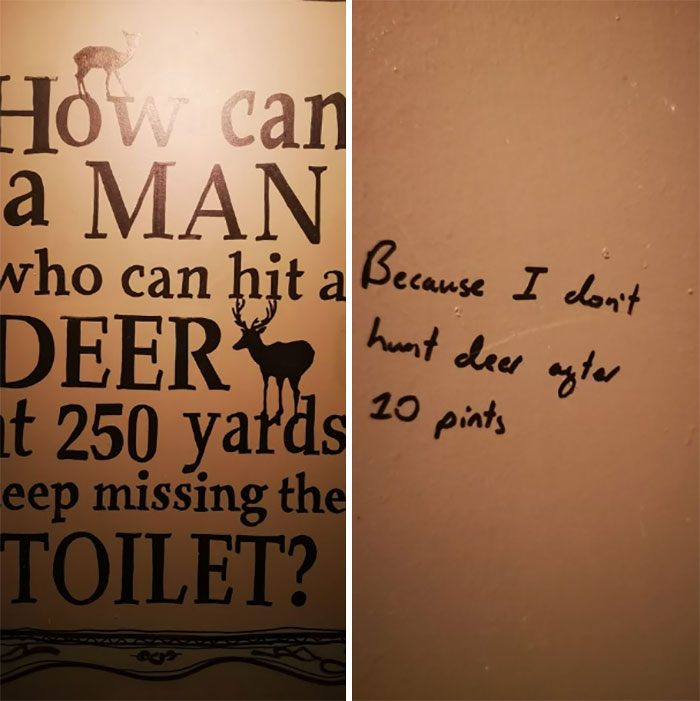 How can
a MAN
who can hit a
DEER
at 250 yards
eep missing the
TOILET?
Because I don't
hunt deer agter
10 pints